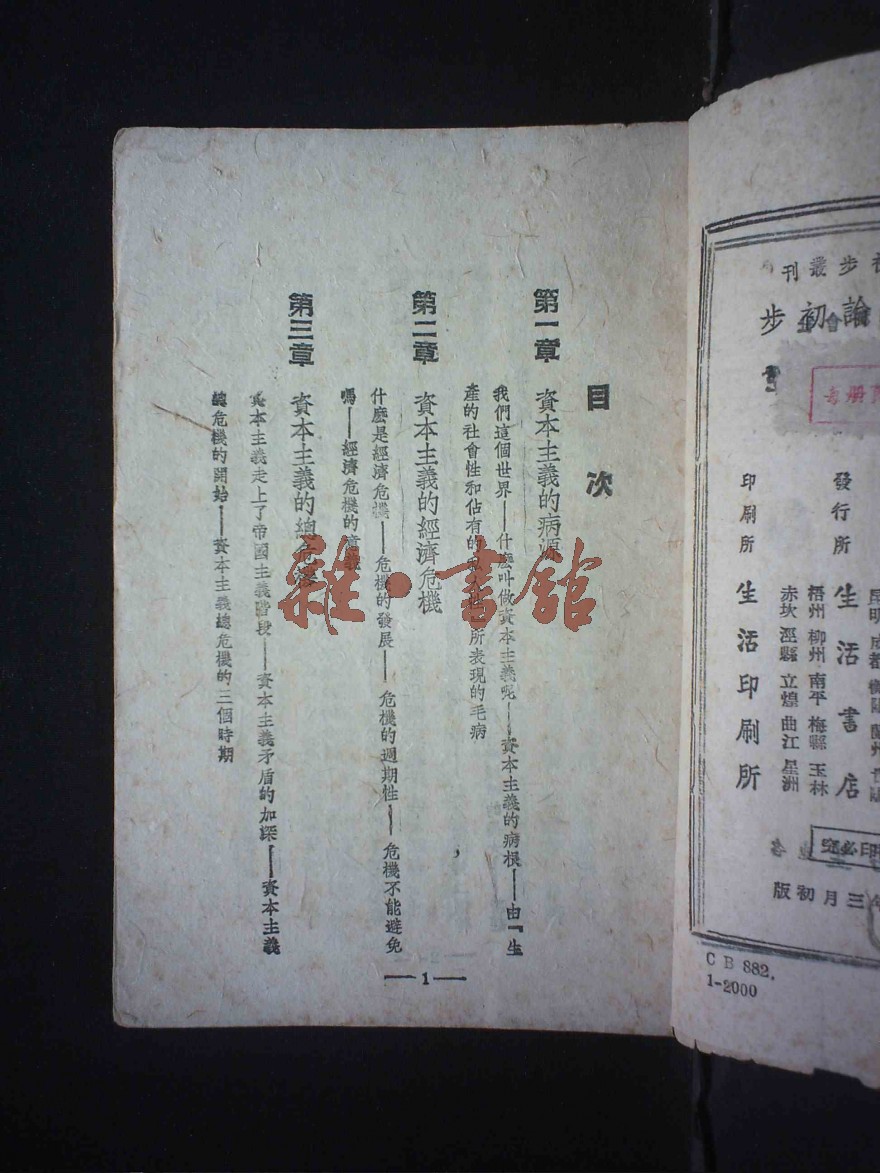 目次
第一章 資本主義的病源
我們這個世界——什麼叫做資本主義呢——資本主義的病根——由「生
產的社會性和佔有的所表現的毛病
第二章 資本主義的經濟危機
什麼是經濟危機——危機的發展——危機的週期性——危機不能避免
嗎——經濟危機的意義
第三章 資本主義的總危機
資本主義走上了帝國主義階段——資本主義矛盾的加深——資本主義
總危機的開始——資本主義總危機的三個時期
—1—
雜·書館
步叢刊
論初步
發行所 生活書店
梧州 柳州 南平 梅縣 玉林
赤坎 涇縣 立煌 曲江 星洲
印刷所 生活印刷所
三月初版
C B 882.
1-2000